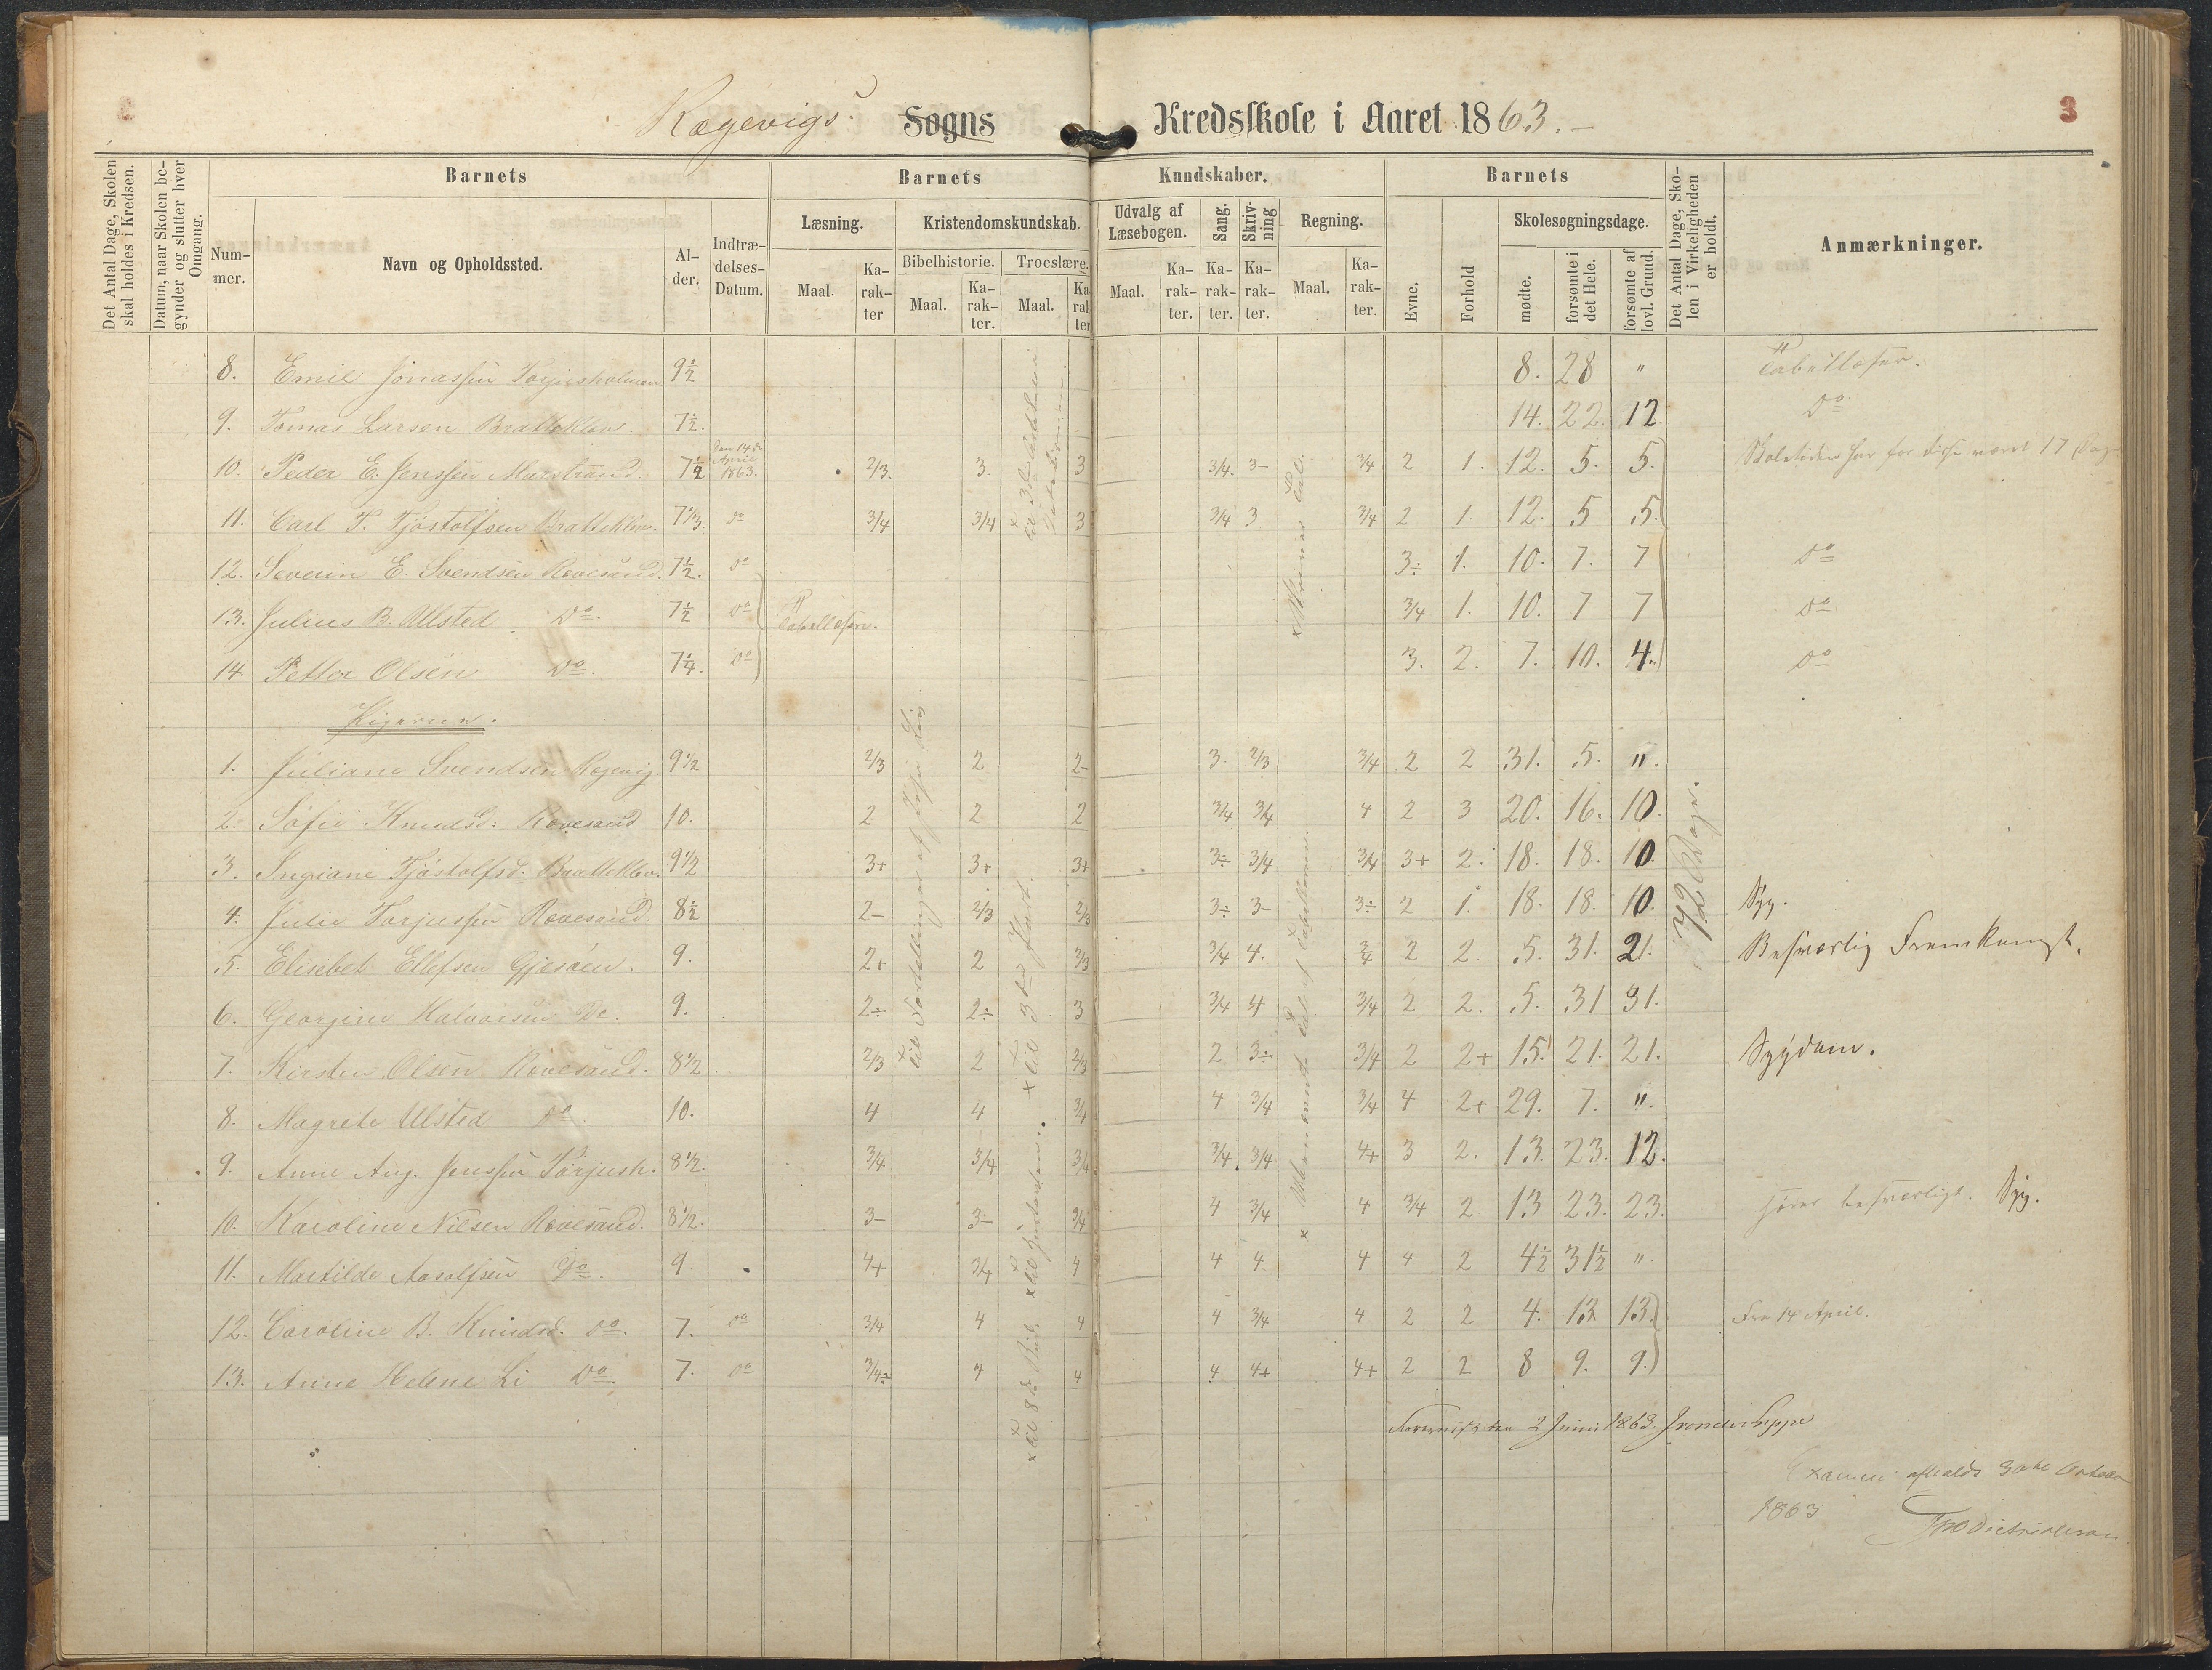 Kragevigs Sogns Kredsskole i Aaret 1863.
3
Det Antal Dage, Skolen skal holdes i Kredsen.
Datum, naar Skolen begynder og slutter hver Omgang.
Barnets
Nummer.
Navn og Opholdssted.
Alder.
Indtrædelses-Datum.
Barnets Kundskaber.
Læsning.
Maal.
Karakter
Kristendomskundskab.
Bibelhistorie.
Maal.
Karakter.
Troeslære.
Maal.
Karakter
Udvalg af Læsebogen.
Maal.
Karakter.
Sang.
Karakter.
Skrivning
Karakter.
Regning.
Maal.
Karakter.
Barnets
Evne.
Forhold
Skolesøgningsdage.
mødte.
forsømte i det Hele.
forsømte af lovl. Grund.
Det Antal Dage, Skolen i Virkeligheden er holdt.
Anmærkninger.
8. Emil Jonassen Torjusholmen 9½ 8. 28 "
9. Tomas Larsen Bratteklev. 7½. 14. 22. 12 Do
10. Peder E. Jenssen Marstrand. 7½ Den 14de April 1863. 2/3. 3. 3 3/4. 3- 3/4 2 1. 12. 5. 5.
11. Carl T. Tjøstolfsen Bratteklev. 7⅓. do 3/4 3/4 3 3/4 3 3/4 2 1. 12. 5 5.
12. Severin E. Svendsen Revesand. 7½. do 3÷ 1. 10. 7. 7 Do
13. Julius B. Ulsted Do. 7½ Do 3/4 1. 10. 7 7 Do
14 Petter Olsen Do. 7¼. Do 3. 2. 7. 10. 4. Do
Pigerne.
1. Juliane Svendsen Ragevig. 9½ 2/3 2 2- 3. 2/3 3/4 2 2 31. 5. ".
2. Sofie Knudsd: Revesand 10. 2 2 2 3/4 3/4 4 2 3 20. 16. 10.
3. Ingiane Tjøstolfsd. Bratteklev. 9½ 3+ 3+ 3+ 3÷ 3/4 3/4 3+ 2. 18. 18. 10.
4. Julie Torjussen Revesand. 8½ 2- 2/3 2/3 3÷ 3- 3÷ 2 1. 18. 18. 10. Syg.
5. Elisebet Ellefsen Gjesøen. 9. 2+ 2 2/3 3/4 4. 3/4 2 2. 5. 31. 21. Besværlig Fremkomst.
6. Georgine Halvorsen Do. 9. 2÷ 2÷ 3 3/4 4 3/4 2 2. 5. 31 31.
7. Kirsten Olsen Revesand. 8½ 2/3 2 2/3 2 3÷ 3/4 2 2+ 15. 21. 21. Sygdom.
8. Magrete Ulsted do. 10. 4 4 3/4 4 3/4 3/4 4 2+ 29. 7. ".
9. Anne Aug. Jenssen Torjush. 8½. 3/4 3/4 3/4 3/4. 3/4 4+ 3 2. 13. 23. 12.
10. Karoline Nilsen Revesand. 8½. 3- 3- 3/4 4 3/4 4 3/4 2 13 23. 23. Syg.
11. Martilde Aasolfsen Do. 9 4+ 3/4 4 4 4. 4 4 2 4½ 31½ ".
12. Caroline B. Knudsd. do. 7. do 3/4 4 4 4 3/4 4 2 2 4. 13 13 Fra 14 April.
13. Anne Helene Li Do. 7. do 3/4÷ 4 4 4 4+ 4+ 2 2 8 9. 9.
72 Dage.
2 Juni 1863.
Examen afholdt 30te October
1863